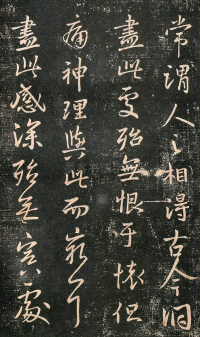 常謂人之相得古今洞
盡此處殆無恨于懷但
痛神理與此而窮耳
盡此感深殆無冥處